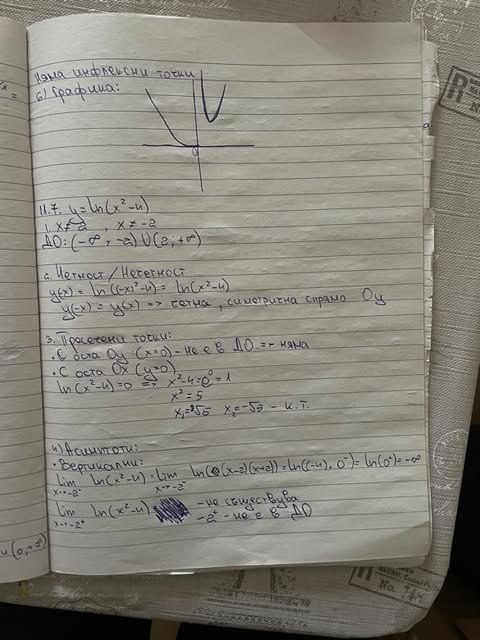 няма инфлексни точки
6) Графика:
0
11.7. y = ln(x²-4)
1. x≠2 , x≠-2
ДО: (-∞, -2) U (2; +∞)
2. Четност / Нечетност
y(-x) = ln((-x)²-4) = ln(x²-4)
y(-x) = y(x) => четна, симетрична спрямо Oy
3. Пресечени точки:
• С оста Oy (x=0) - не е в ДО => няма
• С оста Ox (y=0)
ln(x²-4)=0 => x²-4=e⁰=1
x²=5
x₁=√5 x₂=-√5 - к.т.
4) Асимптоти:
• Вертикални:
lim ln(x²-4) = lim ln((x-2)(x+2)) = ln((-4).0⁻) = ln(0⁺) = -∞
x→-2⁻ x→-2⁻
lim ln(x²-4) - не съществува
x→-2⁺ -2⁺ - не е в ДО